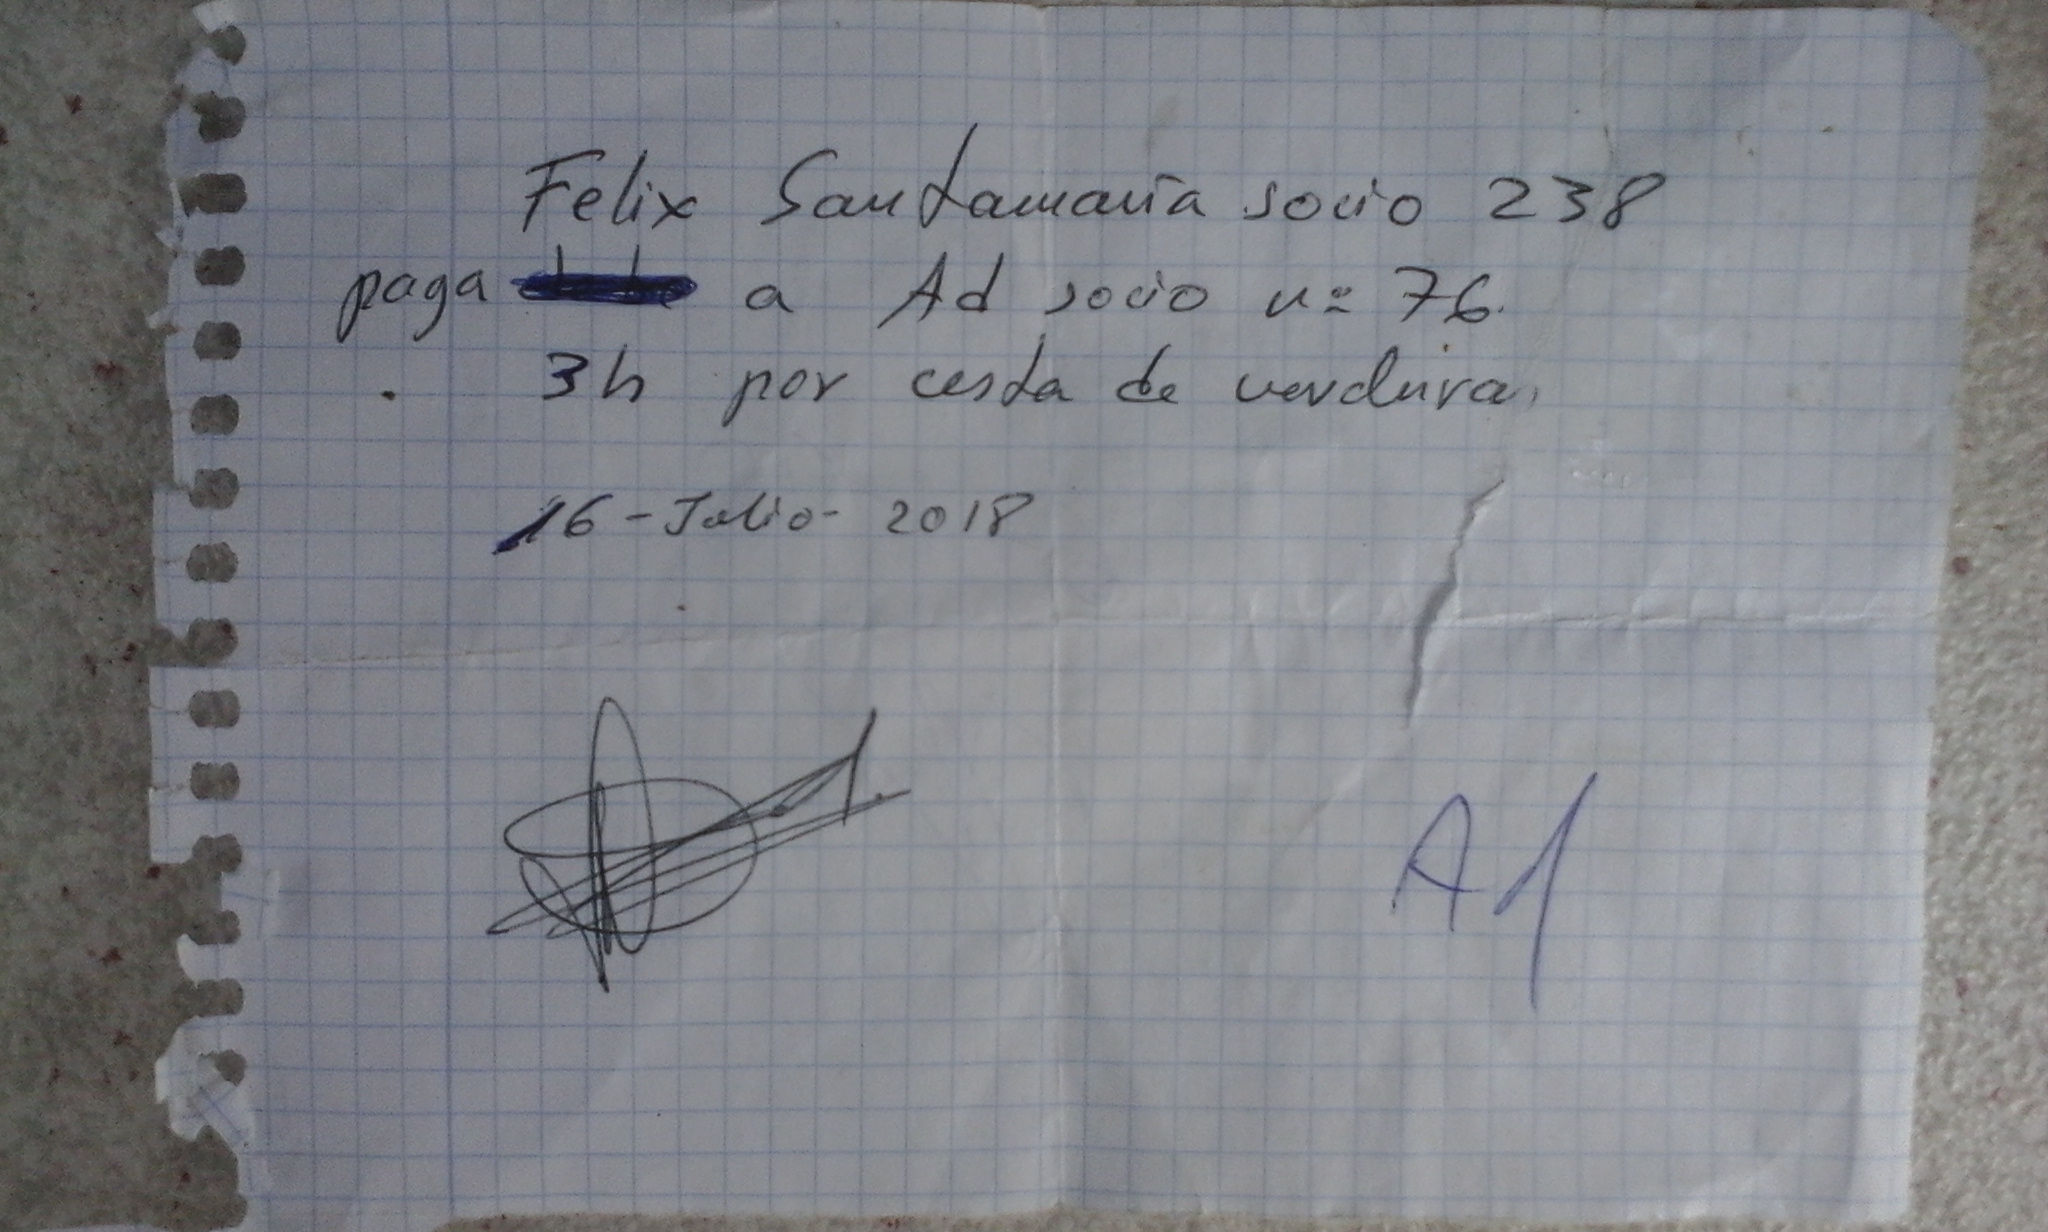 Felix Santamaría socio 238
paga a Ad socio nº 76.
3h por cesta de verdura.
16-Julio-2018
Ad